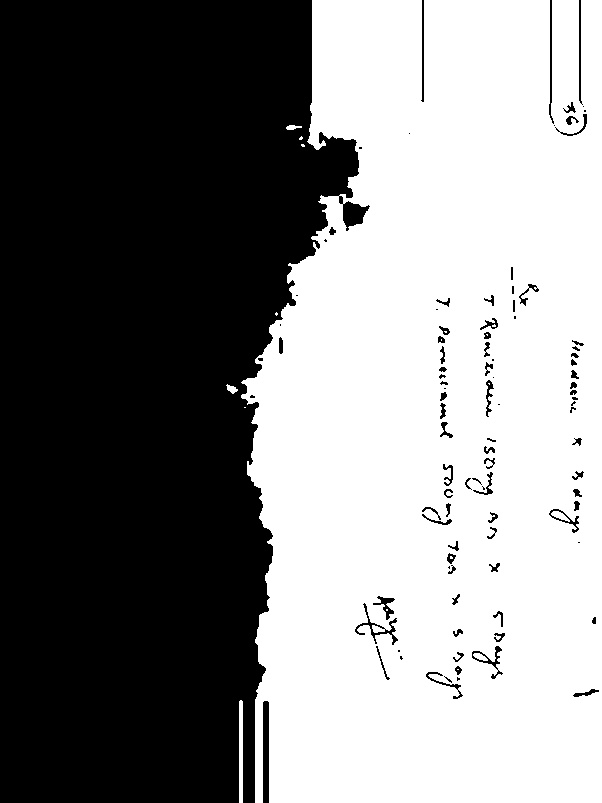 36
Headache x 3 days
Rx
T Ranitidine 150mg BD x 5 Days
T. Paracetamol 500mg TDS x 5 Days